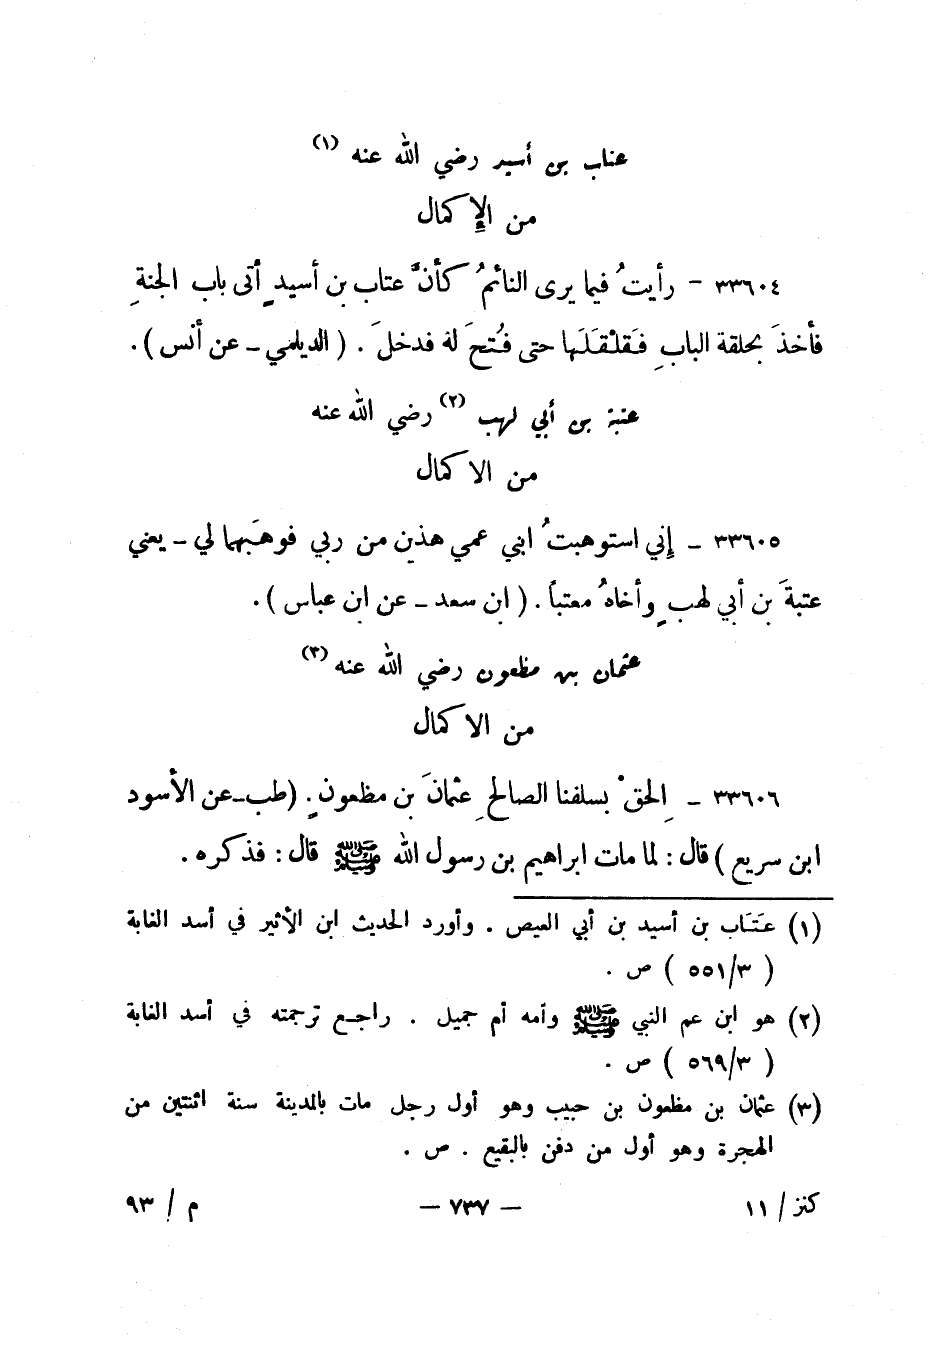 عتاب بن أسيد رضي الله عنه (١)
من الإكمال
٣٣٦٠٤ - رأيتُ فيما يرى النائمُ كأنَّ عتاب بن أسيدٍ أتى باب الجنةِ
فأخذَ بحلقة البابِ فَقلْقَلَها حتى فُتحَ لهُ فدخلَ . ( الديلمي - عن أنس ) .
عتبة بن أبي لهب (٢) رضي الله عنه
من الاكمال
٣٣٦٠٥ - إني استوهبتُ ابني عمي هذين من ربي فوهَبهما لي - يعني
عتبةَ بن أبي لهبٍ وأخاهُ معتباً . ( ابن سعد - عن ابن عباس ) .
عثمان بن مظعون رضي الله عنه (٣)
من الاكمال
٣٣٦٠٦ - اِلحقْ بسلفنا الصالحِ عثمانَ بن مظعونٍ . (طب-عن الأسود
ابن سريع ) قال : لما مات ابراهيم بن رسول الله ﷺ قال : فذكره .
(١) عَتَّاب بن أسيد بن أبي العيص . وأورد الحديث ابن الأثير في أسد الغابة
( ٥٥١/٣ ) ص .
(٢) هو ابن عم النبي ﷺ وأمه أم جميل . راجع ترجمته في أسد الغابة
( ٥٦٩/٣ ) ص .
(٣) عثمان بن مظعون بن حبيب وهو أول رجل مات بالمدينة سنة اثنتين من
الهجرة وهو أول من دفن بالبقيع . ص .
كنز / ١١ — ٧٣٧ — م / ٩٣